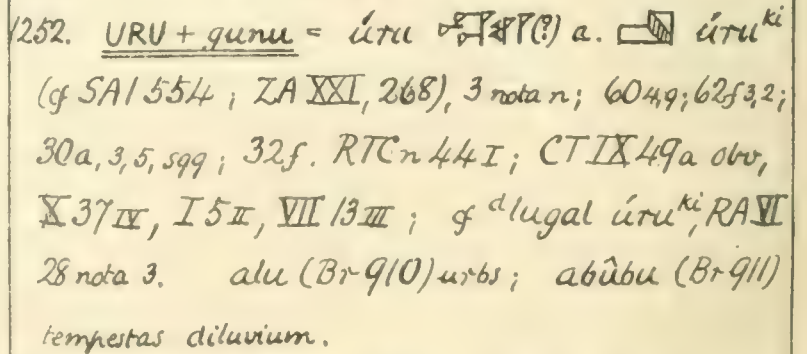 1252. URU + gunu = úru (?) a. úru^ki
(cf SAI 554 ; ZA XXI, 268), 3 nota n; 604,9; 62f3,2;
30a, 3, 5, sqq ; 32f. RTC n 44 I ; CT IX 49a obv,
X 37 IV, I 5 II, VII 13 III ; cf ^dlugal úru^ki, RA VI
28 nota 3. alu (Br 910) urbs ; abûbu (Br 911)
tempestas diluvium.